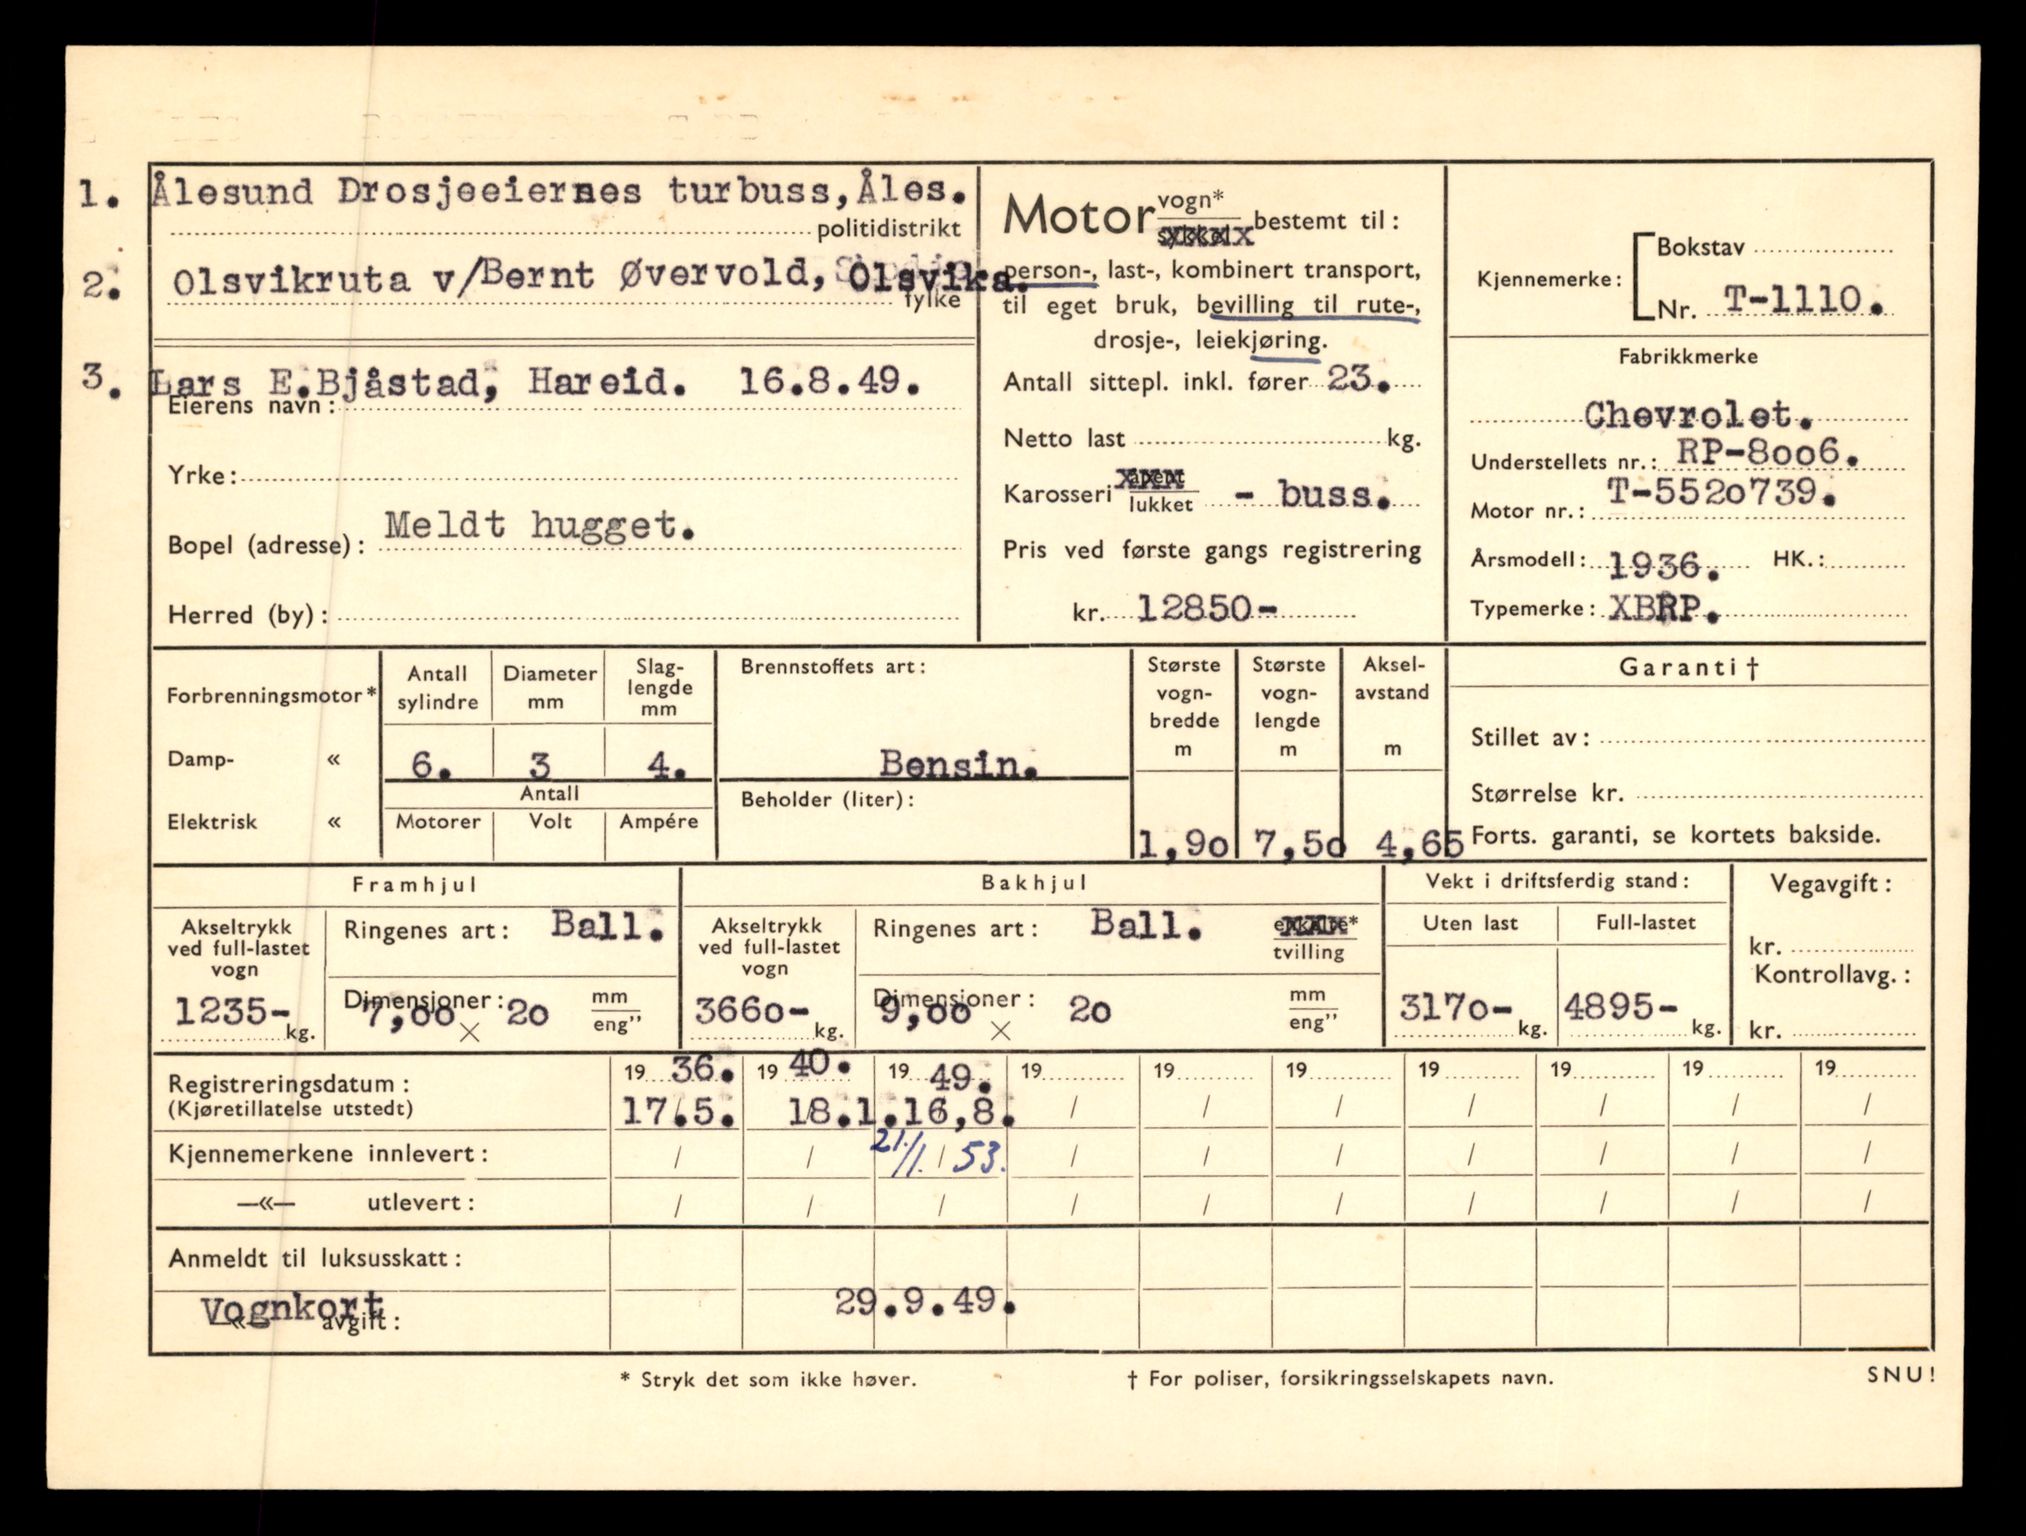 1. Ålesund Drosjeeiernes turbuss, Åles.
politidistrikt
2. Olsvikruta v/Bernt Øvervold, Olsvika.
fylke
3. Lars E.Bjåstad, Hareid. 16.8.49.
Eierens navn:
Yrke:
Bopel (adresse): Meldt hugget.
Herred (by):
Motor vogn* bestemt til:
person-, last-, kombinert transport,
til eget bruk, bevilling til rute-,
drosje-, leiekjøring.
Antall sittepl. inkl. fører 23.
Netto last kg.
Karosseri åpent lukket - buss.
Pris ved første gangs registrering
kr. 12850-
Kjennemerke: Bokstav
Nr. T-1110.
Fabrikkmerke
Chevrolet.
Understellets nr.: RP-8006.
Motor nr.: T-5520739.
Årsmodell: 1936. HK.:
Typemerke: XBRP.
Forbrenningsmotor*
Damp- «
Elektrisk «
Antall sylindre
Diameter mm
Slag-lengde mm
6. 3 4.
Antall
Motorer Volt Ampére
Brennstoffets art:
Bensin.
Beholder (liter):
Største vogn-bredde m
Største vogn-lengde m
Aksel-avstand m
1,90 7,50 4,65
Garanti †
Stillet av:
Størrelse kr.
Forts. garanti, se kortets bakside.
Framhjul
Akseltrykk ved full-lastet vogn
1235- kg.
Ringenes art: Ball.
Dimensjoner: 7,00 × 20 mm eng"
Bakhjul
Akseltrykk ved full-lastet vogn
3660- kg.
Ringenes art: Ball. enkelte* tvilling
Dimensjoner: 9,00 × 20 mm eng"
Vekt i driftsferdig stand:
Uten last Full-lastet
3170- kg. 4895- kg.
Vegavgift:
kr.
Kontrollavg.:
kr.
Registreringsdatum: 19 36. 19 40. 19 49. 19 19 19 19 19 19 19
(Kjøretillatelse utstedt) 17.5. 18.1. 16,8. / / / / / / /
Kjennemerkene innlevert: / / 21/1. / 53. / / / / / / /
—«— utlevert: / / / / / / / / / /
Anmeldt til luksusskatt:
Vognkort 29.9.49.
—«— avgift:
* Stryk det som ikke høver.
† For poliser, forsikringsselskapets navn.
SNU!